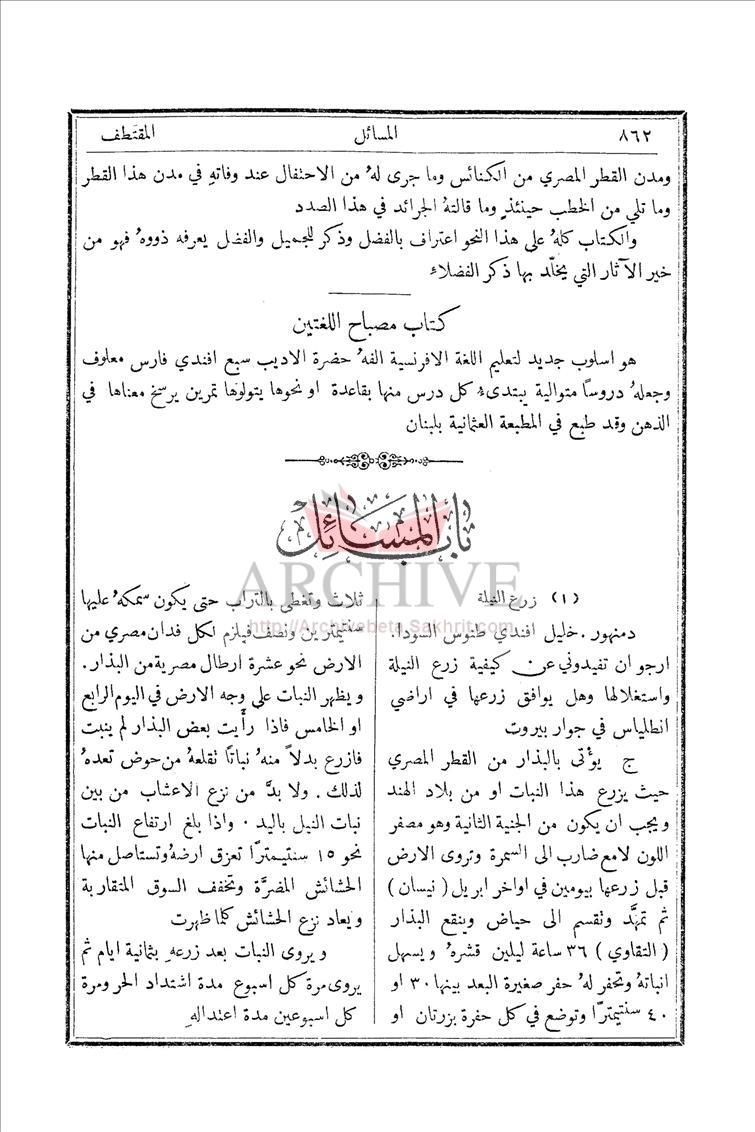 ٨٦٢ المسائل المقتطف
ومدن القطر المصري من الكنائس وما جرى لهُ من الاحتفال عند وفاتهِ في مدن هذا القطر
وما تلي من الخطب حينئذٍ وما قالتهُ الجرائد في هذا الصدد
والكتاب كلهُ على هذا النحو اعتراف بالفضل وذكر للجميل والفضل يعرفه ذووهُ فهو من
خير الآثار التي يخلَّد بها ذكر الفضلاء
كتاب مصباح اللغتين
هو اسلوب جديد لتعليم اللغة الافرنسية الفهُ حضرة الاديب سبع افندي فارس معلوف
وجعلهُ دروسًا متوالية يبتدىء كل درس منها بقاعدة او نحوها يتولوها تمرين يرسخ معناها في
الذهن وقد طبع في المطبعة العثمانية بلبنان
باب المسائل
ARCHIVE
http://Archivebeta.Sakhrit.com
(١) زرع النيلة
دمنهور . خليل افندي طنوس السودا .
ارجو ان تفيدوني عن كيفية زرع النيلة
واستغلالها وهل يوافق زرعها في اراضي
انطلياس في جوار بيروت
ج يؤتى بالبذار من القطر المصري
حيث يزرع هذا النبات او من بلاد الهند
ويجب ان يكون من الجنية الثانية وهو مصفر
اللون لامع ضارب الى السمرة وتروى الارض
قبل زرعها بيومين في اواخر ابريل (نيسان)
ثم تمهَّد وتقسيم الى حياض وينقع البذار
(التقاوي) ٣٦ ساعة ليلين قشرهُ ويسهل
انباتهُ وتحفر لهُ حفر صغيرة البعد بينها ٣٠ او
٤٠ سنتيمترًا وتوضع في كل حفرة بزرتان او
ثلاث وتغطى بالتراب حتى يكون سمكهُ عليها
سنتيمترين ونصف فيلزم لكل فدان مصري من
الارض نحو عشرة ارطال مصرية من البذار .
ويظهر النبات على وجه الارض في اليوم الرابع
او الخامس فاذا رأَيت بعض البذار لم ينبت
فازرع بدلاً منهُ نباتًا نقلعهُ من حوض تعدهُ
لذلك . ولا بدَّ من نزع الاعشاب من بين
نبات النيل باليد . واذا بلغ ارتفاع النبات
نحو ١٥ سنتيمترًا تعزق ارضهُ وتستاصل منها
الحشائش المضرَّة وتخفف السوق المتقاربة
ويعاد نزع الحشائش كلما ظهرت
ويروى النبات بعد زرعهِ بثمانية ايام ثم
يروى مرة كل اسبوع مدة اشتداد الحر ومرة
كل اسبوعين مدة اعتدالهِ